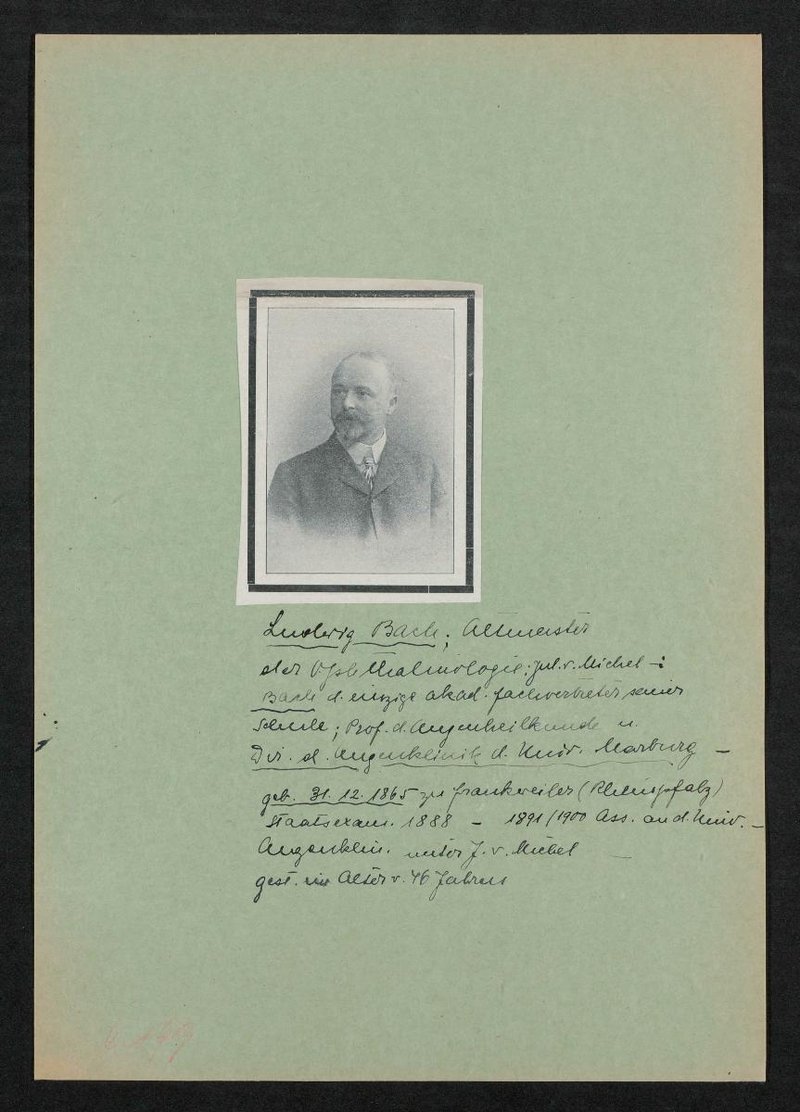 Ludwig Bach; Altmeister
der Ophthalmologie: Jul. v. Michel -:
Bach d. einzige akad. Fachvertreter seiner
Schule; Prof. d. Augenheilkunde u.
Dir. d. Augenklinik d. Univ. Marburg -
geb. 31. 12. 1865 zu Frankweiler (Rheinpfalz)
Staatsexam. 1888 - 1891/1900 Ass. an d. Univ. -
Augenklin. unter J. v. Michel -
gest. im Alter v. 46 Jahren